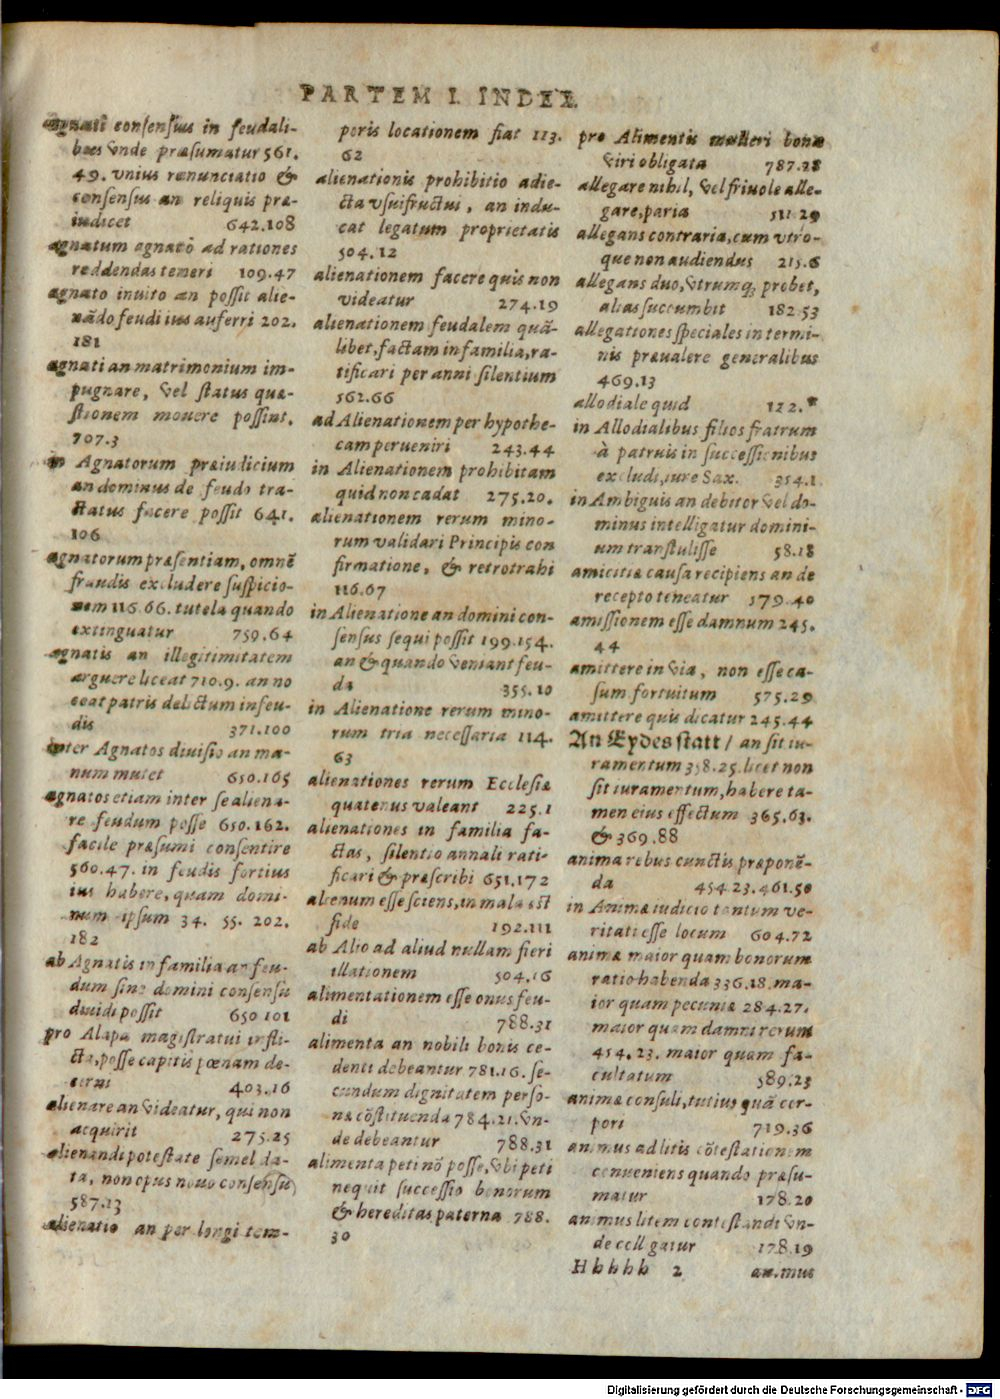 PARTEM I. INDEX.
agnati consensus in feudali-
bus vnde præsumatur 561.
49. vnius renunciatio &
consensus an reliquis præ-
iudicet 642.108
agnatum agnato ad rationes
reddendas teneri 109.47
agnato inuito an possit alie-
nãdo feudi ius auferri 202.
181
agnati an matrimonium im-
pugnare, vel status quæ-
stionem mouere possint.
707.3
in Agnatorum præiudicium
an dominus de feudo tra-
ctatus facere possit 641.
106
agnatorum præsentiam, omnẽ
fraudis excludere suspicio-
nem 116.66. tutela quando
extinguatur 759.64
agnatis an illegitimitatem
arguere liceat 710.9. an no
ceat patris delictum in feu-
dis 371.100
inter Agnatos diuisio an ma-
num mutet 650.165
agnatos etiam inter se aliena-
re feudum posse 650.162.
facile præsumi consentire
560.47. in feudis fortius
ius habere, quam domi-
num ipsum 34. 55. 202.
182
ab Agnatis in familia an feu-
dum sine domini consensu
diuidi possit 650 101
pro Alapa magistratui infli-
cta, posse capitis pœnam de-
cerni 403.16
alienare an videatur, qui non
acquirit 275.25
alienandi potestate semel da-
ta, non opus nouo consensu
587.13
alienatio an per longi tem-
poris locationem fiat 113.
62
alienationis prohibitio adie-
cta vsuifructui, an indu-
cat legatum proprietatis
504.12
alienationem facere quis non
videatur 274.19
alienationem feudalem quã-
libet, factam in familia, ra-
tificari per anni silentium
562.66
ad Alienationem per hypothe-
cam perueniri 243.44
in Alienationem prohibitam
quid non cadat 275.20.
alienationem rerum mino-
rum validari Principis con
firmatione, & retrotrahi
116.67
in Alienatione an domini con-
sensus sequi possit 199.154.
an & quando veniant feu-
da 355.10
in Alienatione rerum mino-
rum tria necessaria 114.
63
alienationes rerum Ecclesiæ
quatenus valeant 225.1
alienationes in familia fa-
ctas, silentio annali rati-
ficari & præscribi 651.172
alienum esse sciens, in mala est
fide 192.111
ab Alio ad aliud nullam fieri
illationem 504.16
alimentationem esse onus feu-
di 788.31
alimenta an nobili bonis ce-
denti debeantur 781.16. se-
cundum dignitatem perso-
næ cõstituenda 784.21. vn-
de debeantur 788.31
alimenta peti nõ posse, vbi peti
nequit successio bonorum
& hereditas paterna 788.
30
pro Alimentis mulieri bona
viri obligata 787.28
allegare nihil, vel friuole alle-
gare, paria 511.29
allegans contraria, cum vtro-
que non audiendus 215.6
allegans duo, vtrumq; probet,
alias succumbit 182.53
allegationes speciales in termi-
nis præualere generalibus
469.13
allodiale quid 122.*
in Allodialibus filios fratrum
à patruis in successionibus
excludi, iure Sax. 354.1
in Ambiguis an debitor vel do-
minus intelligatur domini-
um transtulisse 58.18
amicitiæ causa recipiens an de
recepto teneatur 579.40
amissionem esse damnum 245.
44
amittere in via, non esse ca-
sum fortuitum 575.29
amittere quis dicatur 245.44
An Eydes statt / an sit iu-
ramentum 358.25. licet non
sit iuramentum, habere ta-
men eius effectum 365.63.
& 369.88
anima rebus cunctis præponẽ-
da 454.23.461.50
in Animæ iudicio tantum ve-
ritati esse locum 604.72
animæ maior quam bonorum
ratio habenda 336.18. ma-
ior quam pecuniæ 284.27.
maior quam damni rerum
454.23. maior quam fa-
cultatum 589.23
animæ consuli, tutius quã cor-
pori 719.36
animus ad litis cõtestationem
conueniens quando præsu-
matur 178.20
animus litem contestandi vn-
de colligatur 178.19
Hhhhh 2 animus
Digitalisierung gefördert durch die Deutsche Forschungsgemeinschaft - DFG